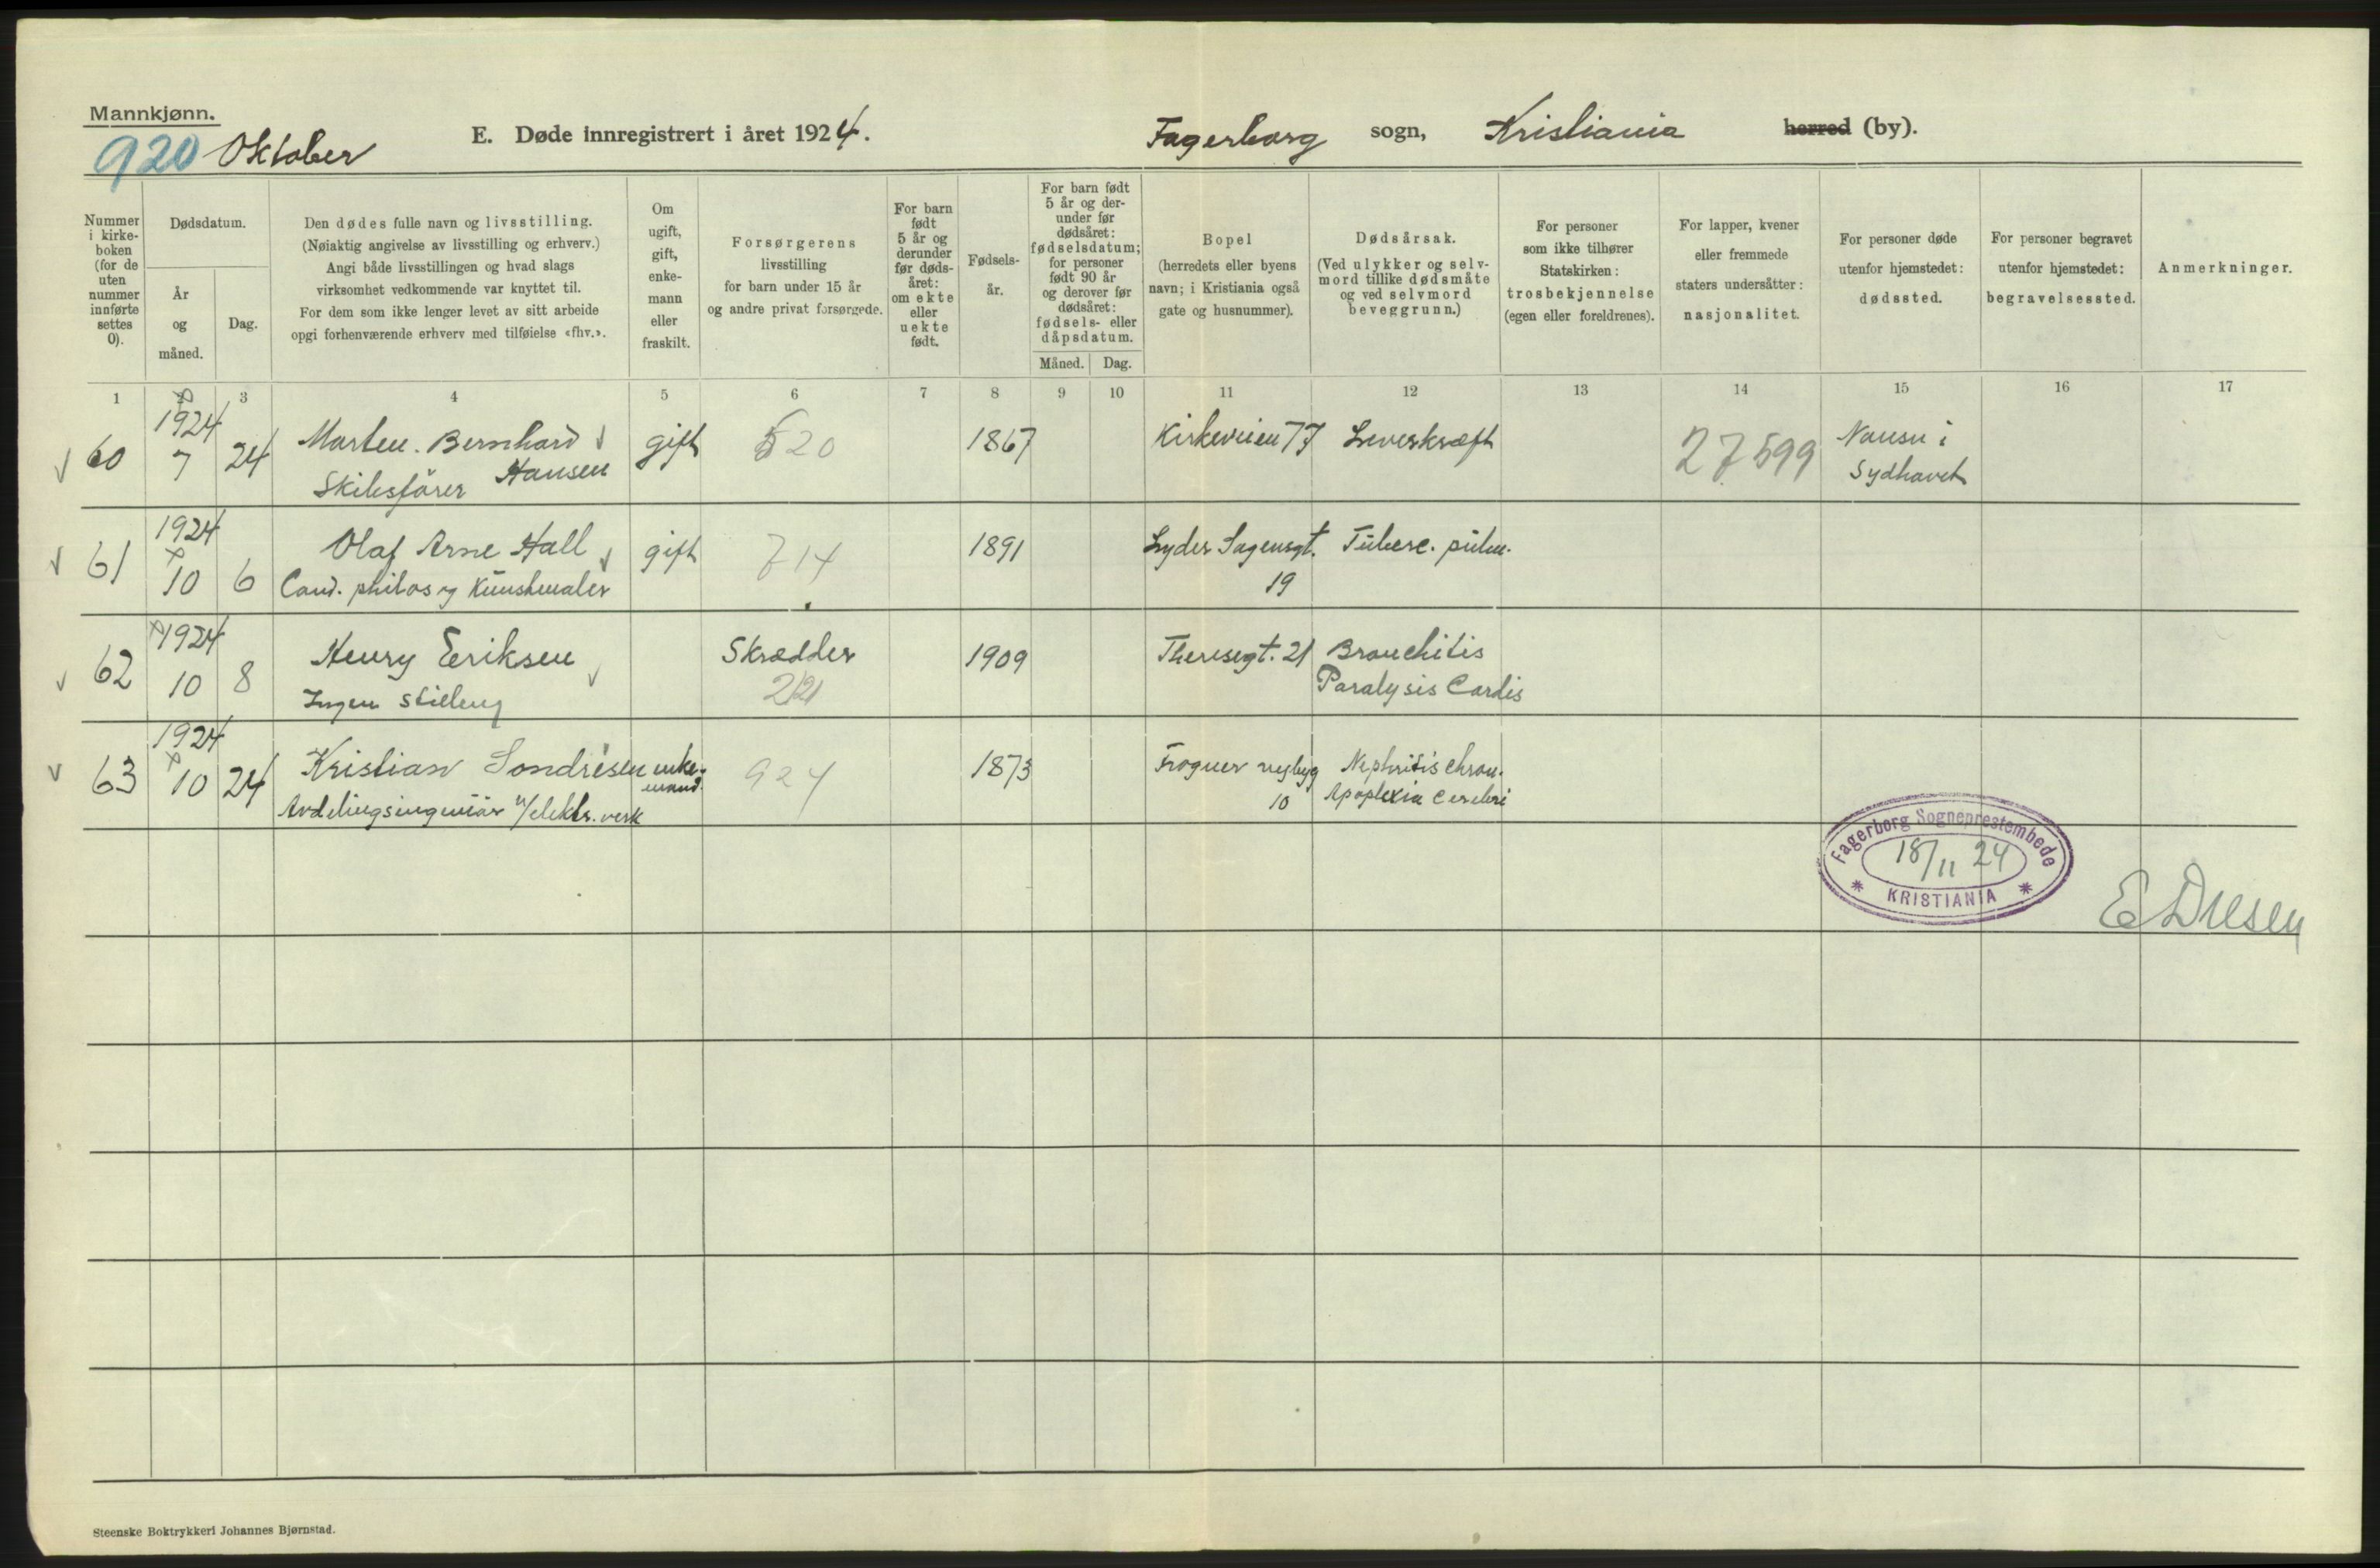 Mannkjønn.
920 Oktober
E. Døde innregistrert i året 1924.
Fagerborg sogn, Kristiania herred (by).
Nummer i kirke-boken (for de uten nummer innførte settes 0).
Dødsdatum.
År og måned.
Dag.
Den dødes fulle navn og livsstilling.
(Nøiaktig angivelse av livsstilling og erhverv.)
Angi både livsstillingen og hvad slags
virksomhet vedkommende var knyttet til.
For dem som ikke lenger levet av sitt arbeide
opgi forhenværende erhverv med tilføielse «fhv.».
Om ugift, gift, enke-mann eller fraskilt.
Forsørgerens
livsstilling
for barn under 15 år
og andre privat forsørgede.
For barn født 5 år og derunder før døds-året: om ekte eller uekte født.
Fødsels-år.
For barn født 5 år og der-under før dødsåret: fødselsdatum; for personer født 90 år og derover før dødsåret: fødsels- eller dåpsdatum.
Måned. Dag.
Bopel
(herredets eller byens
navn; i Kristiania også
gate og husnummer).
Dødsårsak.
(Ved ulykker og selv-
mord tillike dødsmåte
og ved selvmord
beveggrunn.)
For personer
som ikke tilhører
Statskirken:
trosbekjennelse
(egen eller foreldrenes).
For lapper, kvener
eller fremmede
staters undersåtter:
nasjonalitet.
For personer døde
utenfor hjemstedet:
dødssted.
For personer begravet
utenfor hjemstedet:
begravelsessted.
Anmerkninger.
1 2 3 4 5 6 7 8 9 10 11 12 13 14 15 16 17
60 1924 7 24 Marten. Bernhard Hansen gift 520 1867 Kirkeveien 77 Leverkræft 27599 Nausu i
Skibsfører Sydhavet
61 1924 10 6 Olaf Arne Hall gift 714 1891 Lyder Sagensgt. Tuberc. pulm.
Cand. philos og Kunstmaler 19
62 1924 10 8 Henry Eriksen Skrædder 1909 Theresegt. 21 Bronchitis
Ingen stilling 221 Paralysis Cordis
63 1924 10 24 Kristian Sondresen enke- 924 1873 Frogner nybyg Nephritis chron.
mand.
Avdelingsingeniør v/elektr. verk 10 Apoplexia cerebri
Fagerborg Sogneprestembede
18/11 24
KRISTIANIA
Steenske Boktrykkeri Johannes Bjørnstad.